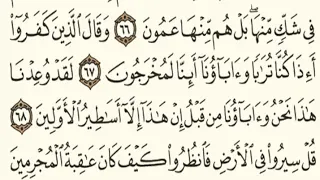 فِى شَكٍّ مِّنْهَا ۖ بَلْ هُم مِّنْهَا عَمُونَ ٦٦ وَقَالَ ٱلَّذِينَ كَفَرُوٓا۟
أَءِذَا كُنَّا تُرَٰبًا وَءَابَآؤُنَآ أَئِنَّا لَمُخْرَجُونَ ٦٧ لَقَدْ وُعِدْنَا
هَٰذَا نَحْنُ وَءَابَآؤُنَا مِن قَبْلُ إِنْ هَٰذَآ إِلَّآ أَسَٰطِيرُ ٱلْأَوَّلِينَ ٦٨
قُلْ سِيرُوا۟ فِى ٱلْأَرْضِ فَٱنظُرُوا۟ كَيْفَ كَانَ عَٰقِبَةُ ٱلْمُجْرِمِينَ